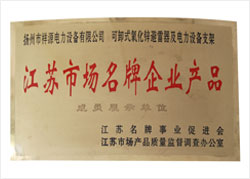 扬州市祥源电力设备有限公司 · 可卸式氧化锌避雷器及电力设备支架
江苏市场名牌企业产品
成员展示单位
江苏名牌事业促进会
江苏市场产品质量监督调查办公室